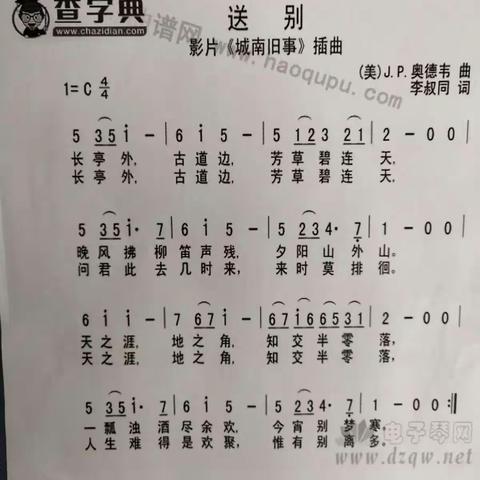 查字典
www.chazidian.com
谱网
www.haoqupu.com
送 别
影片《城南旧事》插曲
1=C 4/4
(美)J.P.奥德韦 曲
李叔同 词
5 35 i - | 6 i 5 - | 5 123 21 | 2 - 0 0 |
长亭外, 古道边, 芳草碧连天,
长亭外, 古道边, 芳草碧连天,
5 35 i· 7 | 6 i 5 - | 5 234· 7 | 1 - 0 0 |
晚风拂柳笛声残, 夕阳山外山。
问君此去几时来, 来时莫徘徊。
6 i i - | 7 67 i - | 67i6 6531 | 2 - 0 0 |
天之涯, 地之角, 知交半零落,
天之涯, 地之角, 知交半零落,
5 35 i· 7 | 6 i 5 - | 5 234· 7 | 1 - 0 0 :||
一瓢浊酒尽余欢, 今宵别梦寒。
人生难得是欢聚, 惟有别离多。
电子琴网
www.dzqw.net